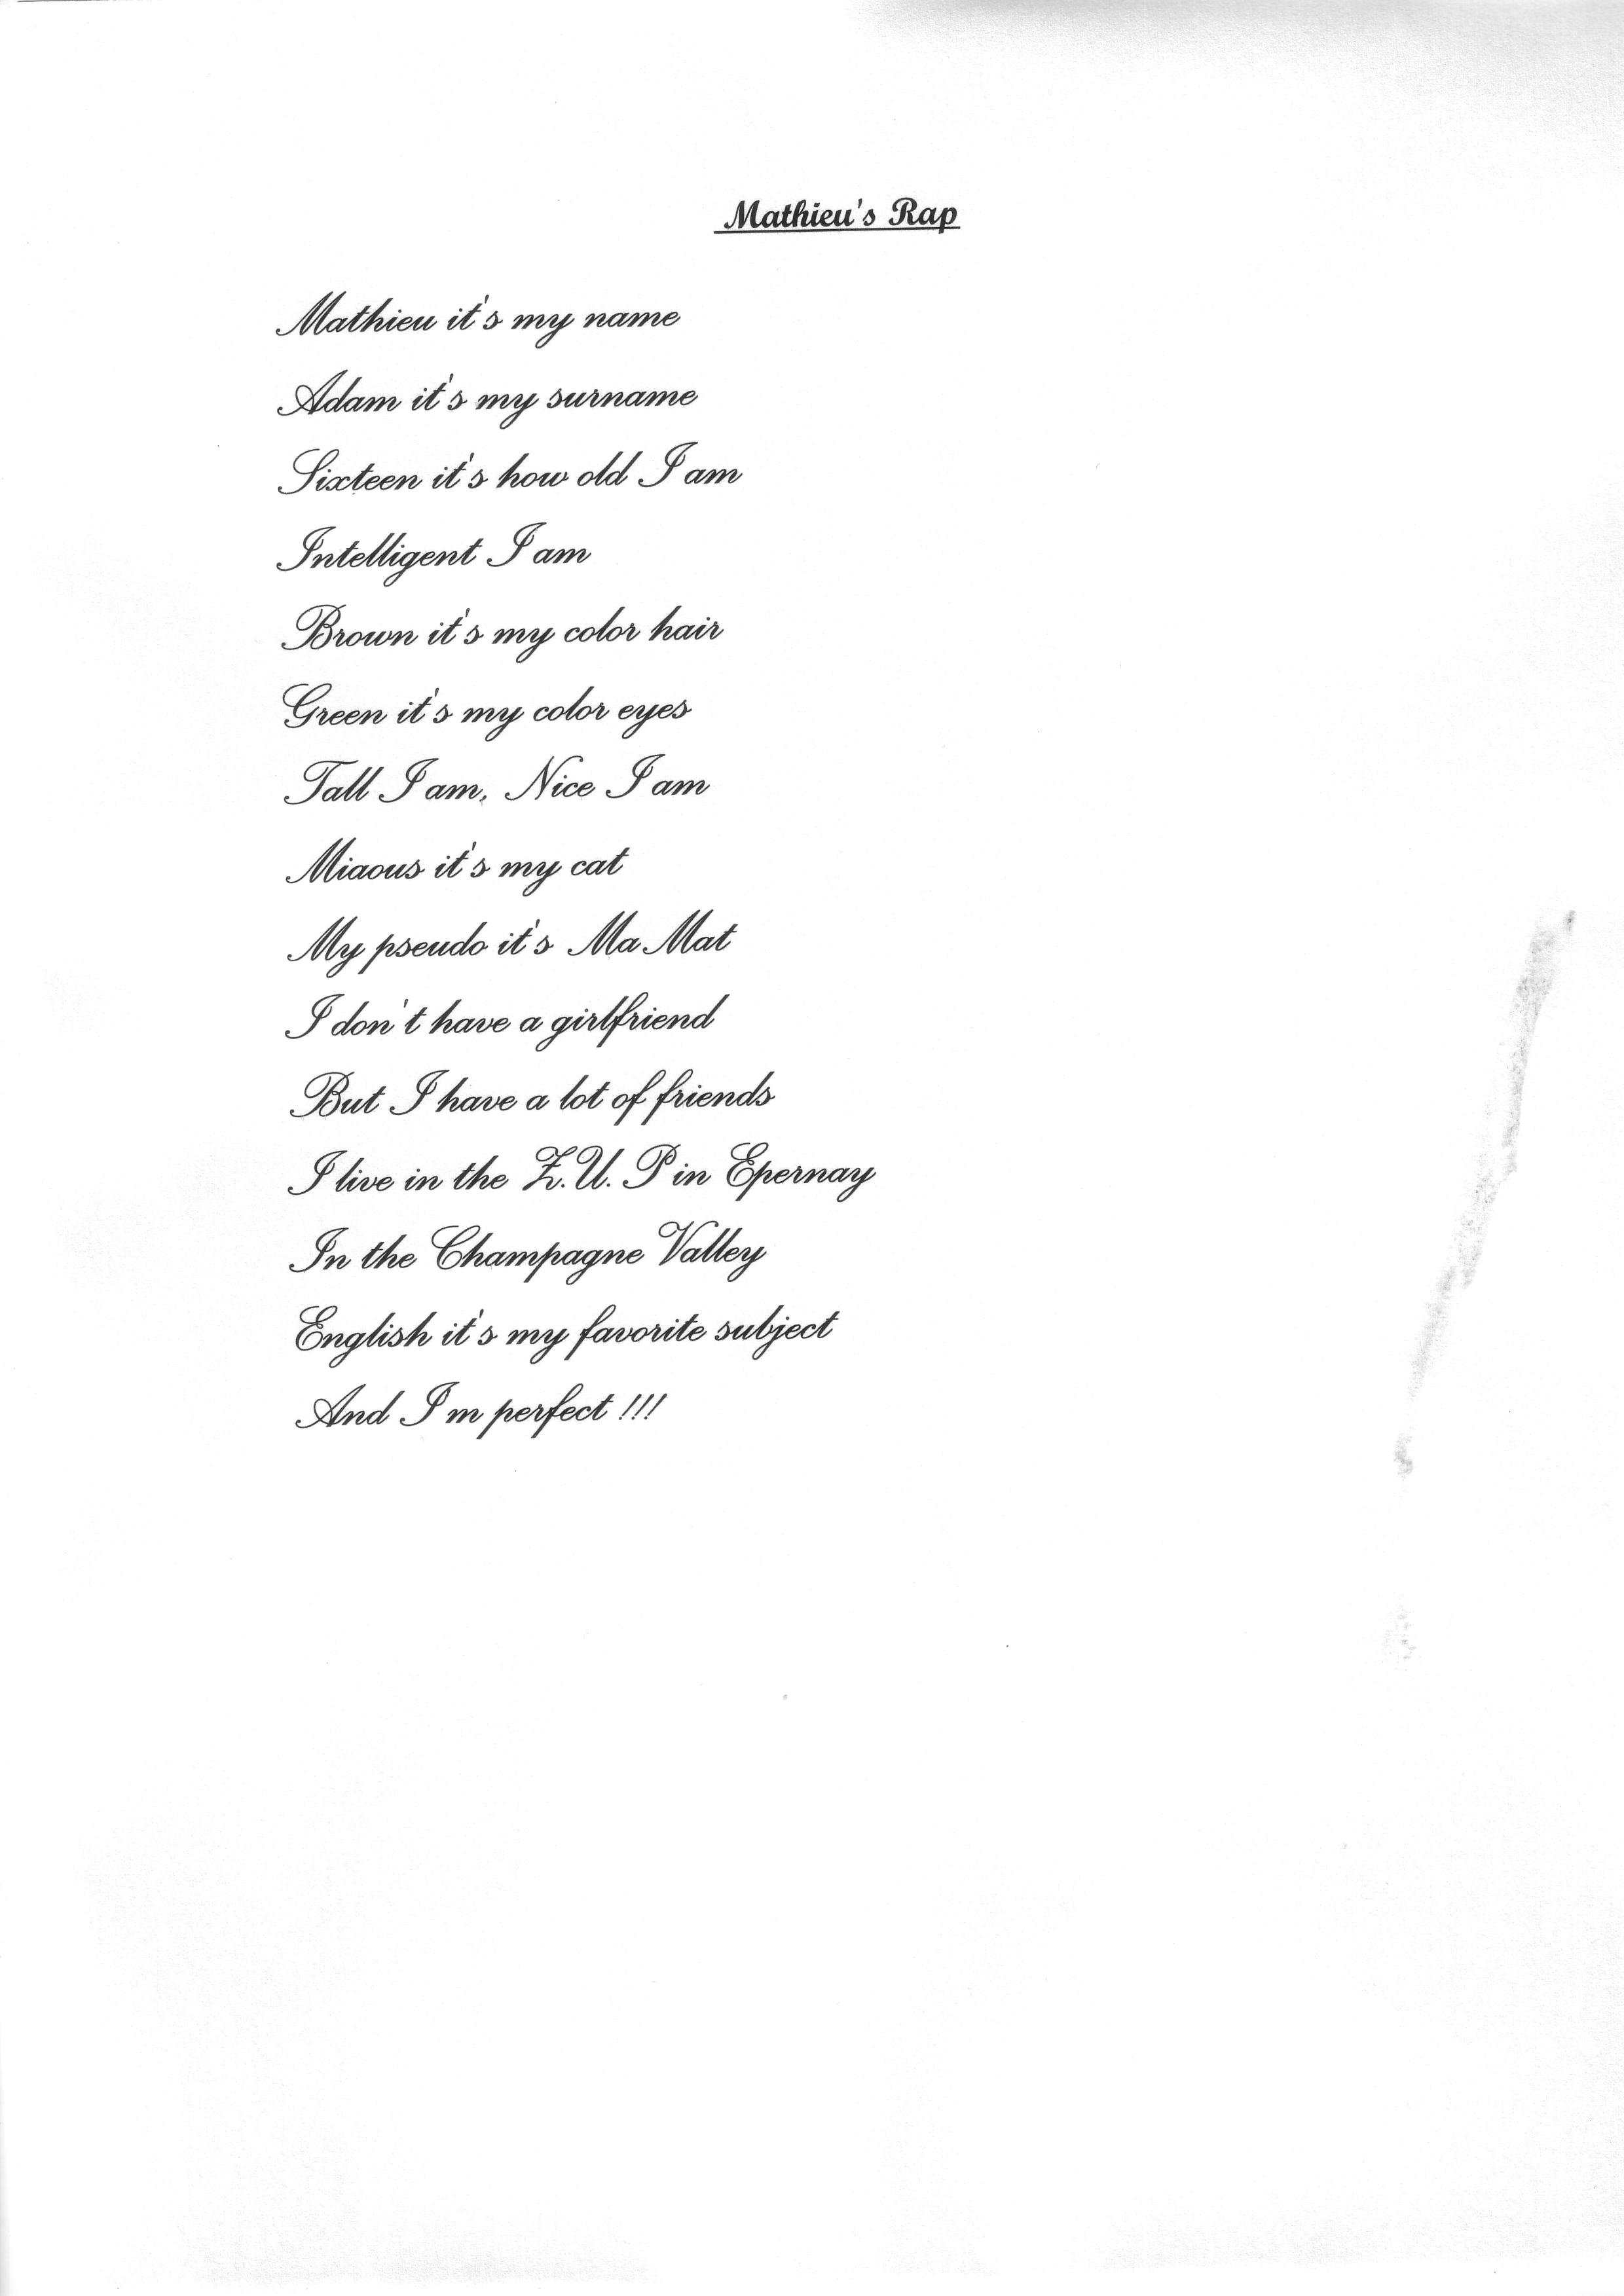 Mathieu's Rap
Mathieu it's my name
Adam it's my surname
Sixteen it's how old I am
Intelligent I am
Brown it's my color hair
Green it's my color eyes
Tall I am, Nice I am
Miaous it's my cat
My pseudo it's Ma Mat
I don't have a girlfriend
But I have a lot of friends
I live in the Z.U.P in Epernay
In the Champagne Valley
English it's my favorite subject
And I'm perfect !!!